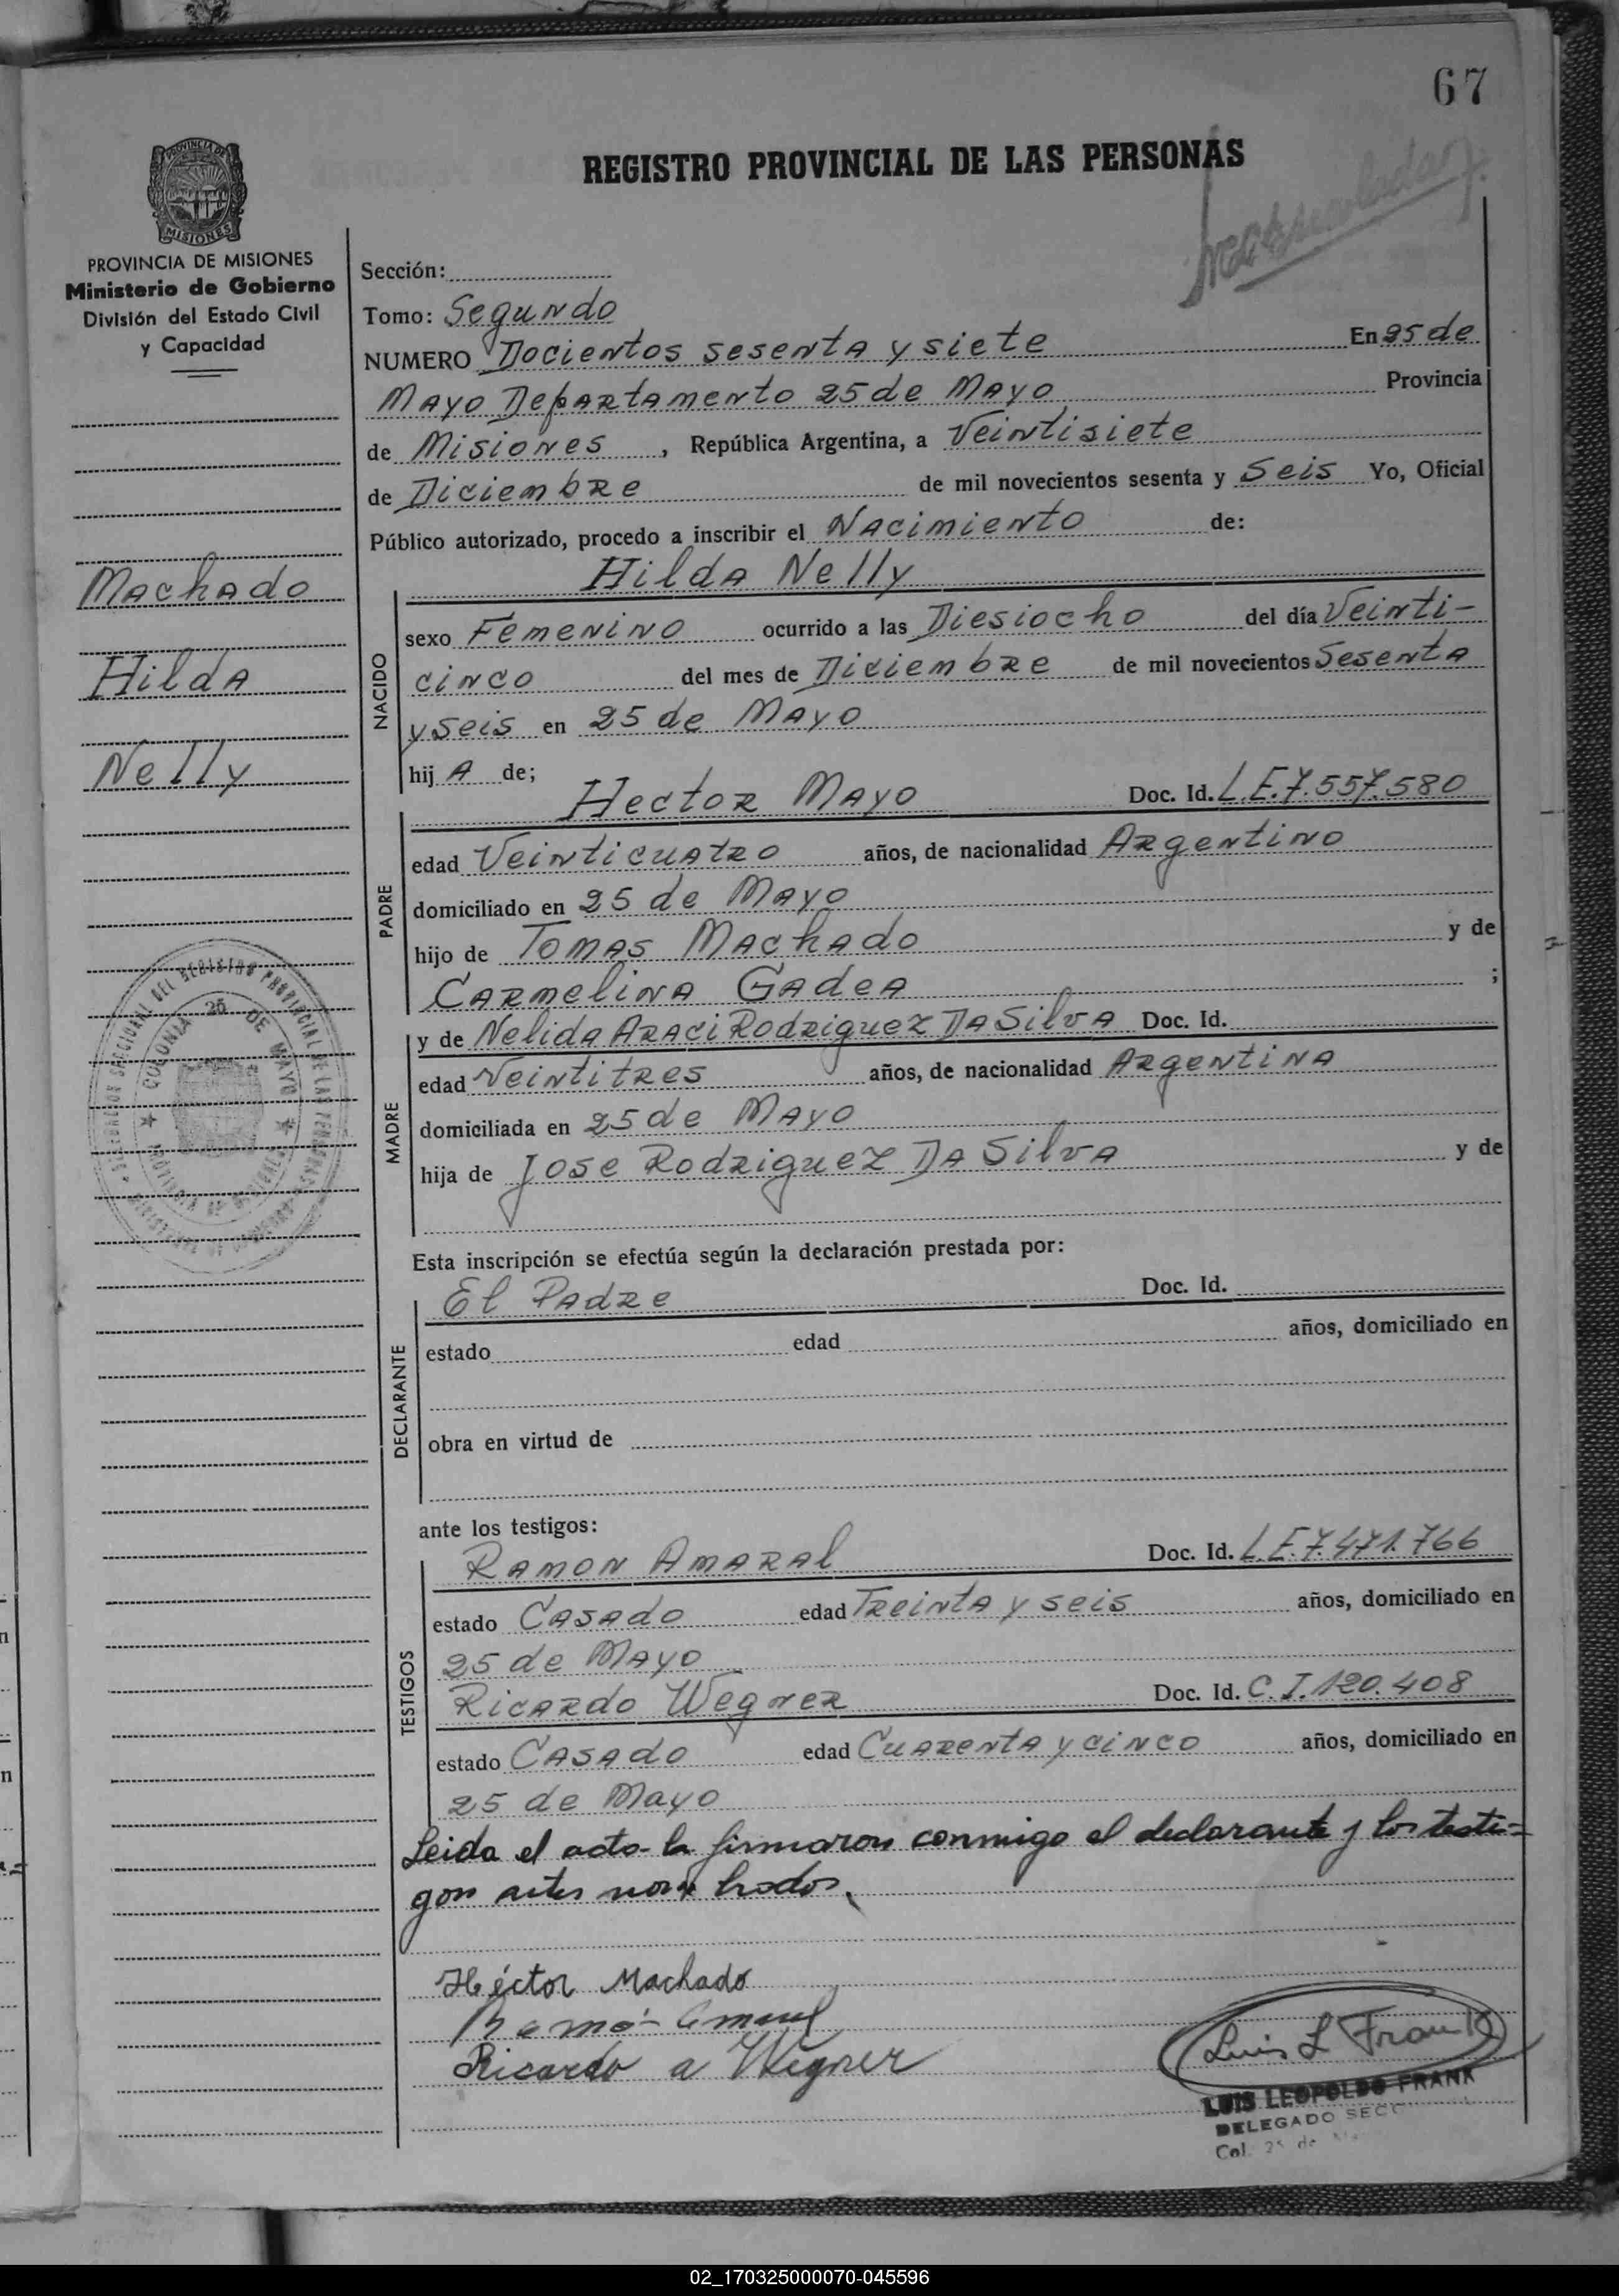 67
REGISTRO PROVINCIAL DE LAS PERSONAS
PROVINCIA DE MISIONES
Ministerio de Gobierno
División del Estado Civil
y Capacidad
Machado
Hilda
Nelly
Sección:
Tomo: Segundo
NUMERO Docientos sesenta y siete En 25 de
Mayo Departamento 25 de Mayo Provincia
de Misiones, República Argentina, a Veintisiete
de Diciembre de mil novecientos sesenta y Seis Yo, Oficial
Público autorizado, procedo a inscribir el Nacimiento de:
Hilda Nelly
NACIDO
sexo Femenino ocurrido a las Diesiocho del día Veinti-
cinco del mes de Diciembre de mil novecientos Sesenta
y seis en 25 de Mayo
hij A de;
Hector Mayo Doc. Id. L.E.7.557.580
PADRE
edad Veinticuatro años, de nacionalidad Argentino
domiciliado en 25 de Mayo
hijo de Tomas Machado y de
Carmelina Gadea ;
y de Nelida Araci Rodriguez Da Silva Doc. Id.
MADRE
edad Veintitres años, de nacionalidad Argentina
domiciliada en 25 de Mayo
hija de Jose Rodriguez Da Silva y de
Esta inscripción se efectúa según la declaración prestada por:
El Padre Doc. Id.
DECLARANTE
estado edad años, domiciliado en
obra en virtud de
ante los testigos:
Ramon Amaral Doc. Id. L.E.7.471.766
TESTIGOS
estado Casado edad Treinta y seis años, domiciliado en
25 de Mayo
Ricardo Wegner Doc. Id. C.I.120.408
estado Casado edad Cuarenta y cinco años, domiciliado en
25 de Mayo
Leida el acta la firmaron conmigo el declarante y los testi-
gos
Héctor Machado
Ricardo a Wegner
Luis L Frank
LUIS LEOPOLDO FRANK
DELEGADO SECC
Col. 25 de
COLONIA 25 DE MAYO
02_170325000070-045596